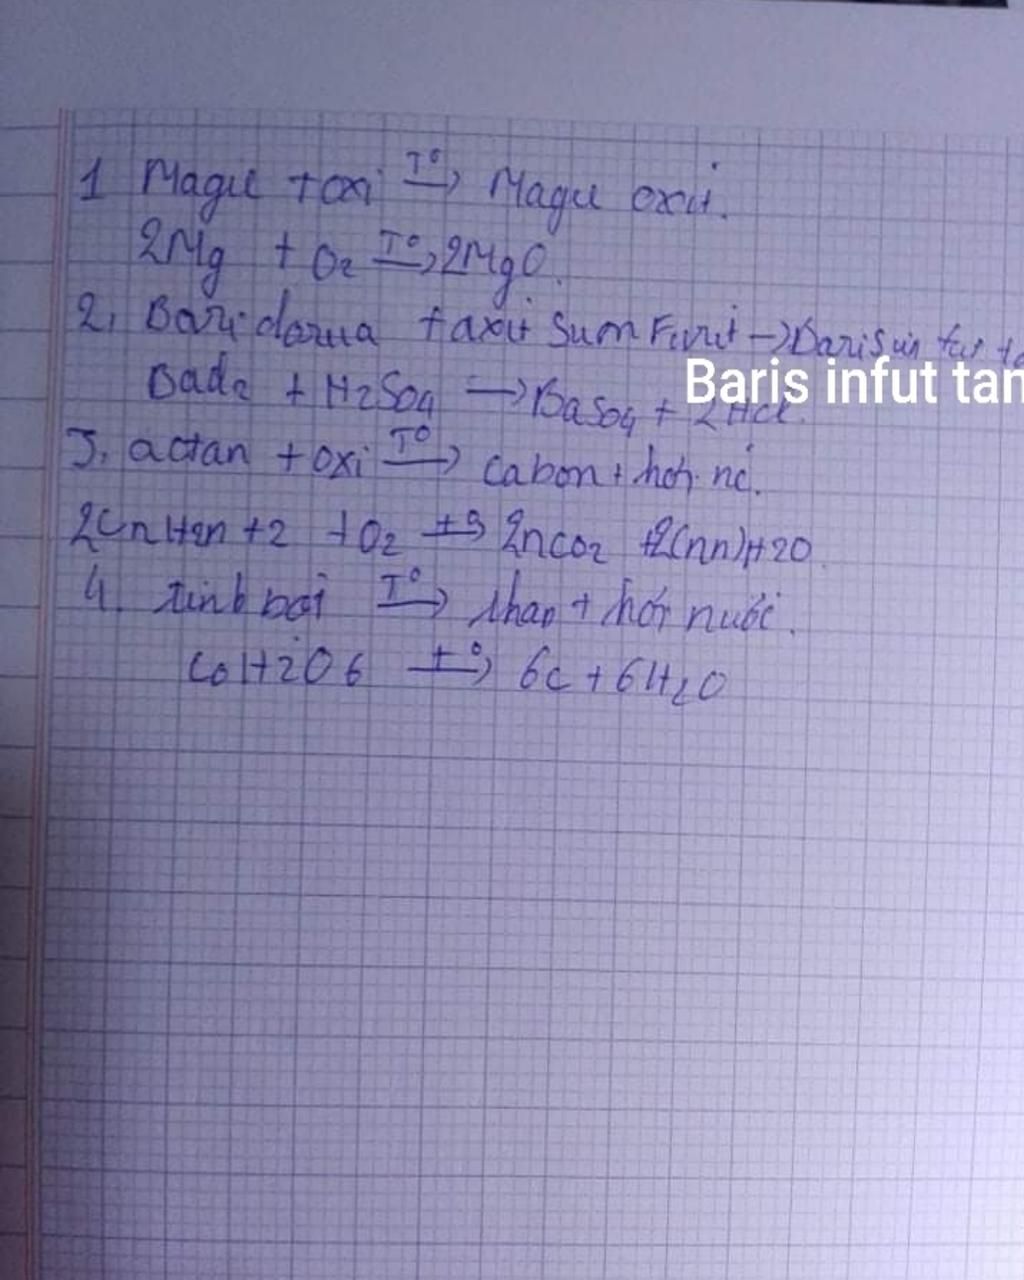 1 Magie + oxi T° → Magie oxit.
2Mg + O2 T° → 2MgO.
2, Bari dorua + axit Sum Furit →
Baris infut tan
Bad2 + H2SO4 → BaSO4 + 2HCl.
3, actan + oxi T° → cabon + hơi nc.
2CnH2n+2 + O2 → 2nCO2 +2(nn)H2O
4. tinh bơi T° → than + hơi nước.
C6H2O6 t° → 6C + 6H2O